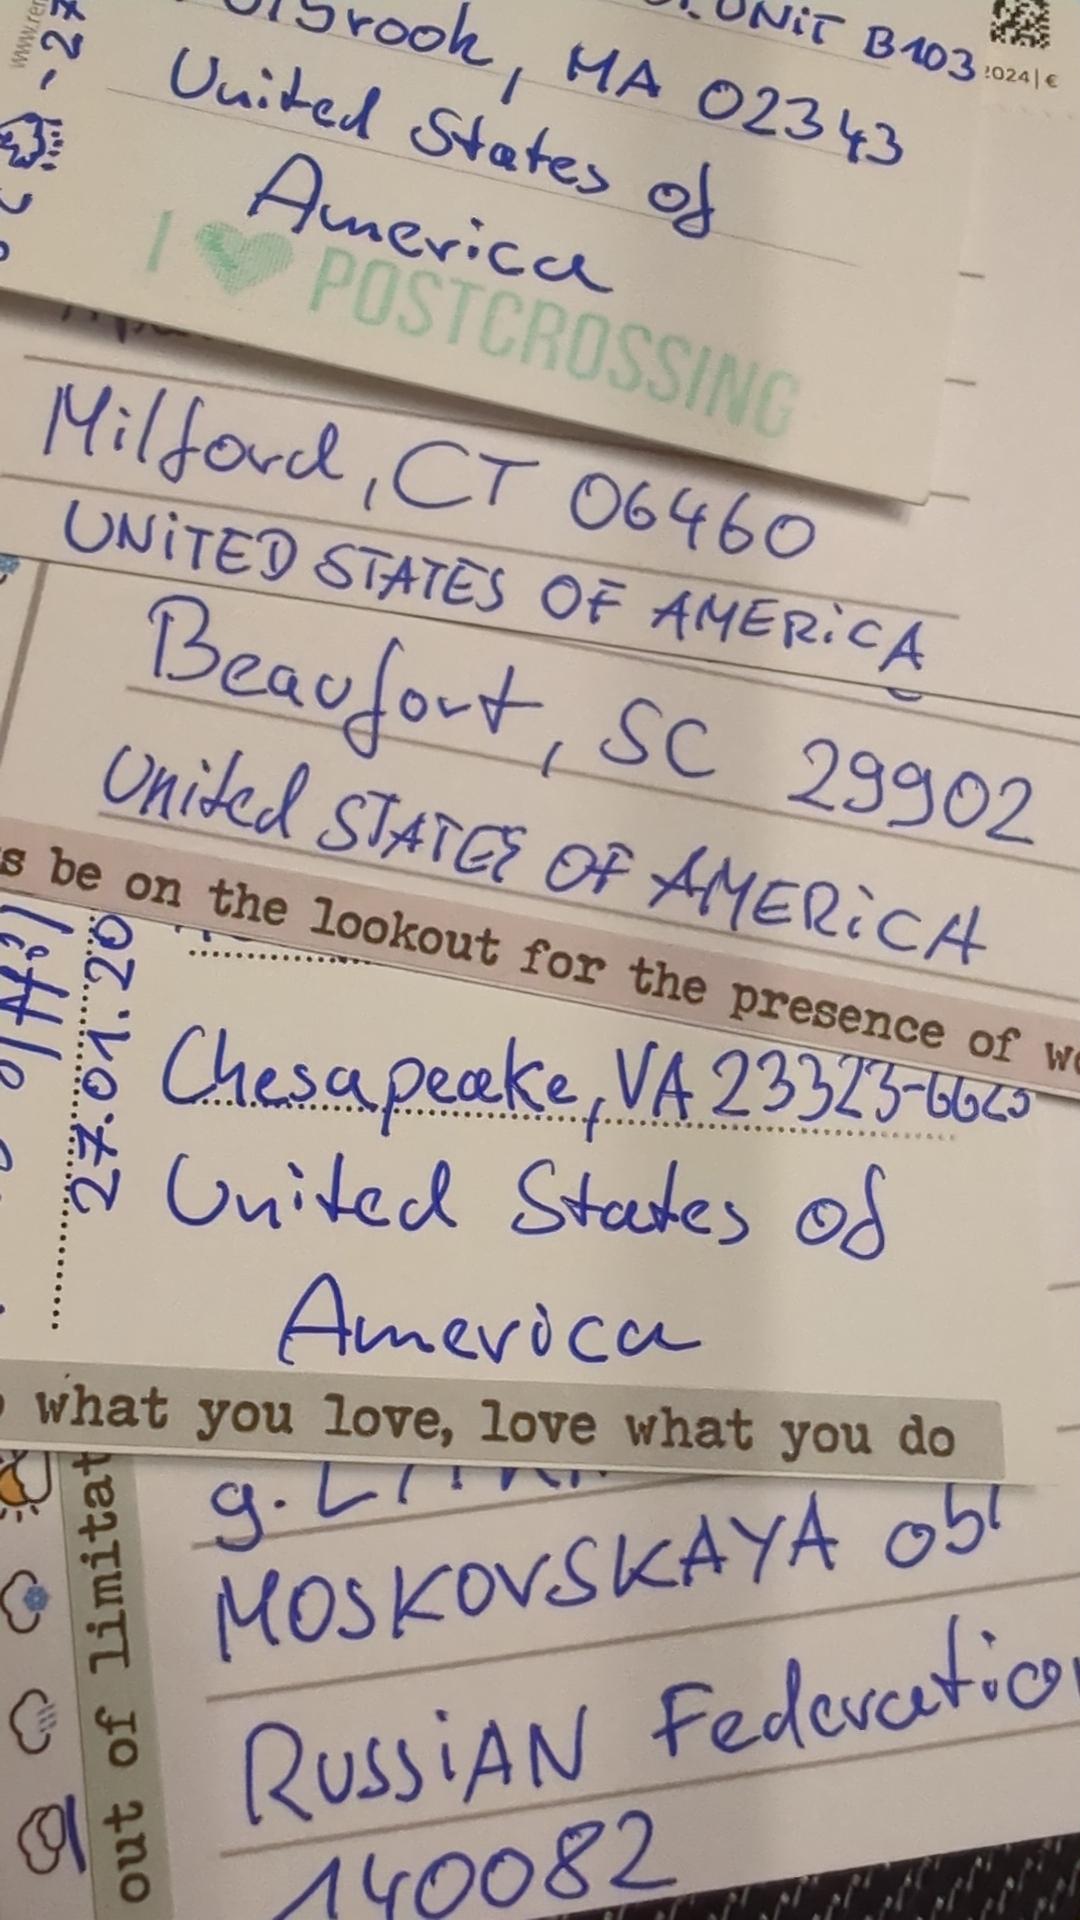 UNIT B103
2024 | €
brook, MA 02343
United States of
America
I ♥ POSTCROSSING
Milford, CT 06460
UNITED STATES OF AMERICA
Beaufort, SC 29902
United STATES OF AMERICA
be on the lookout for the presence of
27.01.20
Chesapeake, VA 23323-6625
United States of
America
what you love, love what you do
g.
MOSKOVSKAYA obl
RUSSIAN Federatio
140082
out of limitat